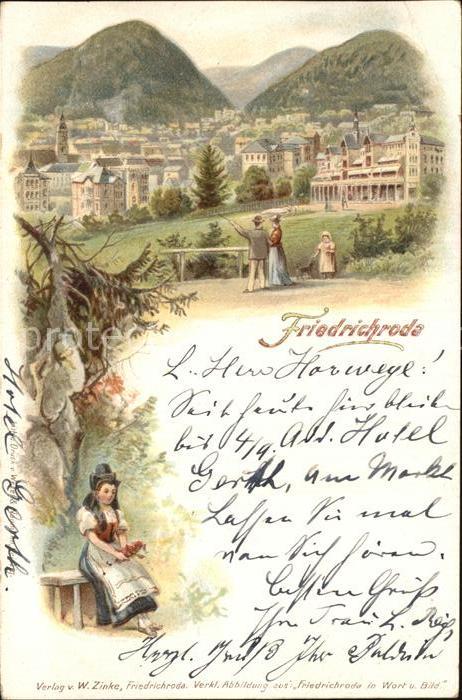 Friedrichroda
L. Herr Horwege!
Seit heute hier bleiben
bis 4/9. Adr. Hotel
Gerth, am Markt
Lassen Sie mal
von Sich hören.
besten Gruß
Ihr
Herzl. Gruß Ihr
Hotel Gerth.
Verlag v. W. Zinke, Friedrichroda. Verkl. Abbildung aus: „Friedrichroda in Wort u. Bild."